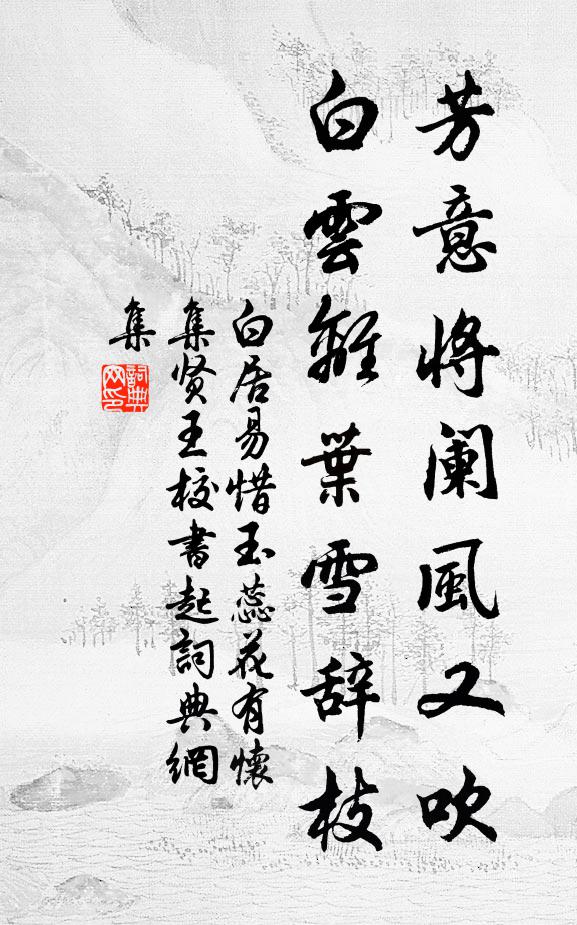 芳意将阑風又吹
白雲離葉雪辞枝
白居易惜玉蕊花有懷
集贤王校書起詞典網
集
詞典
网印